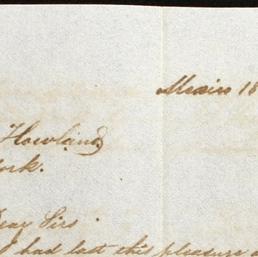 Mexico 18
Howland
ork.
Dear Sirs.
I had last this pleasure